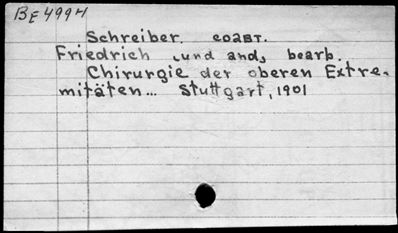 BE 4994
Schreiber. соавт.
Friedrich (und and) bearb.
Chirurgie der oberen Extre-
mitäten... Stuttgart, 1901